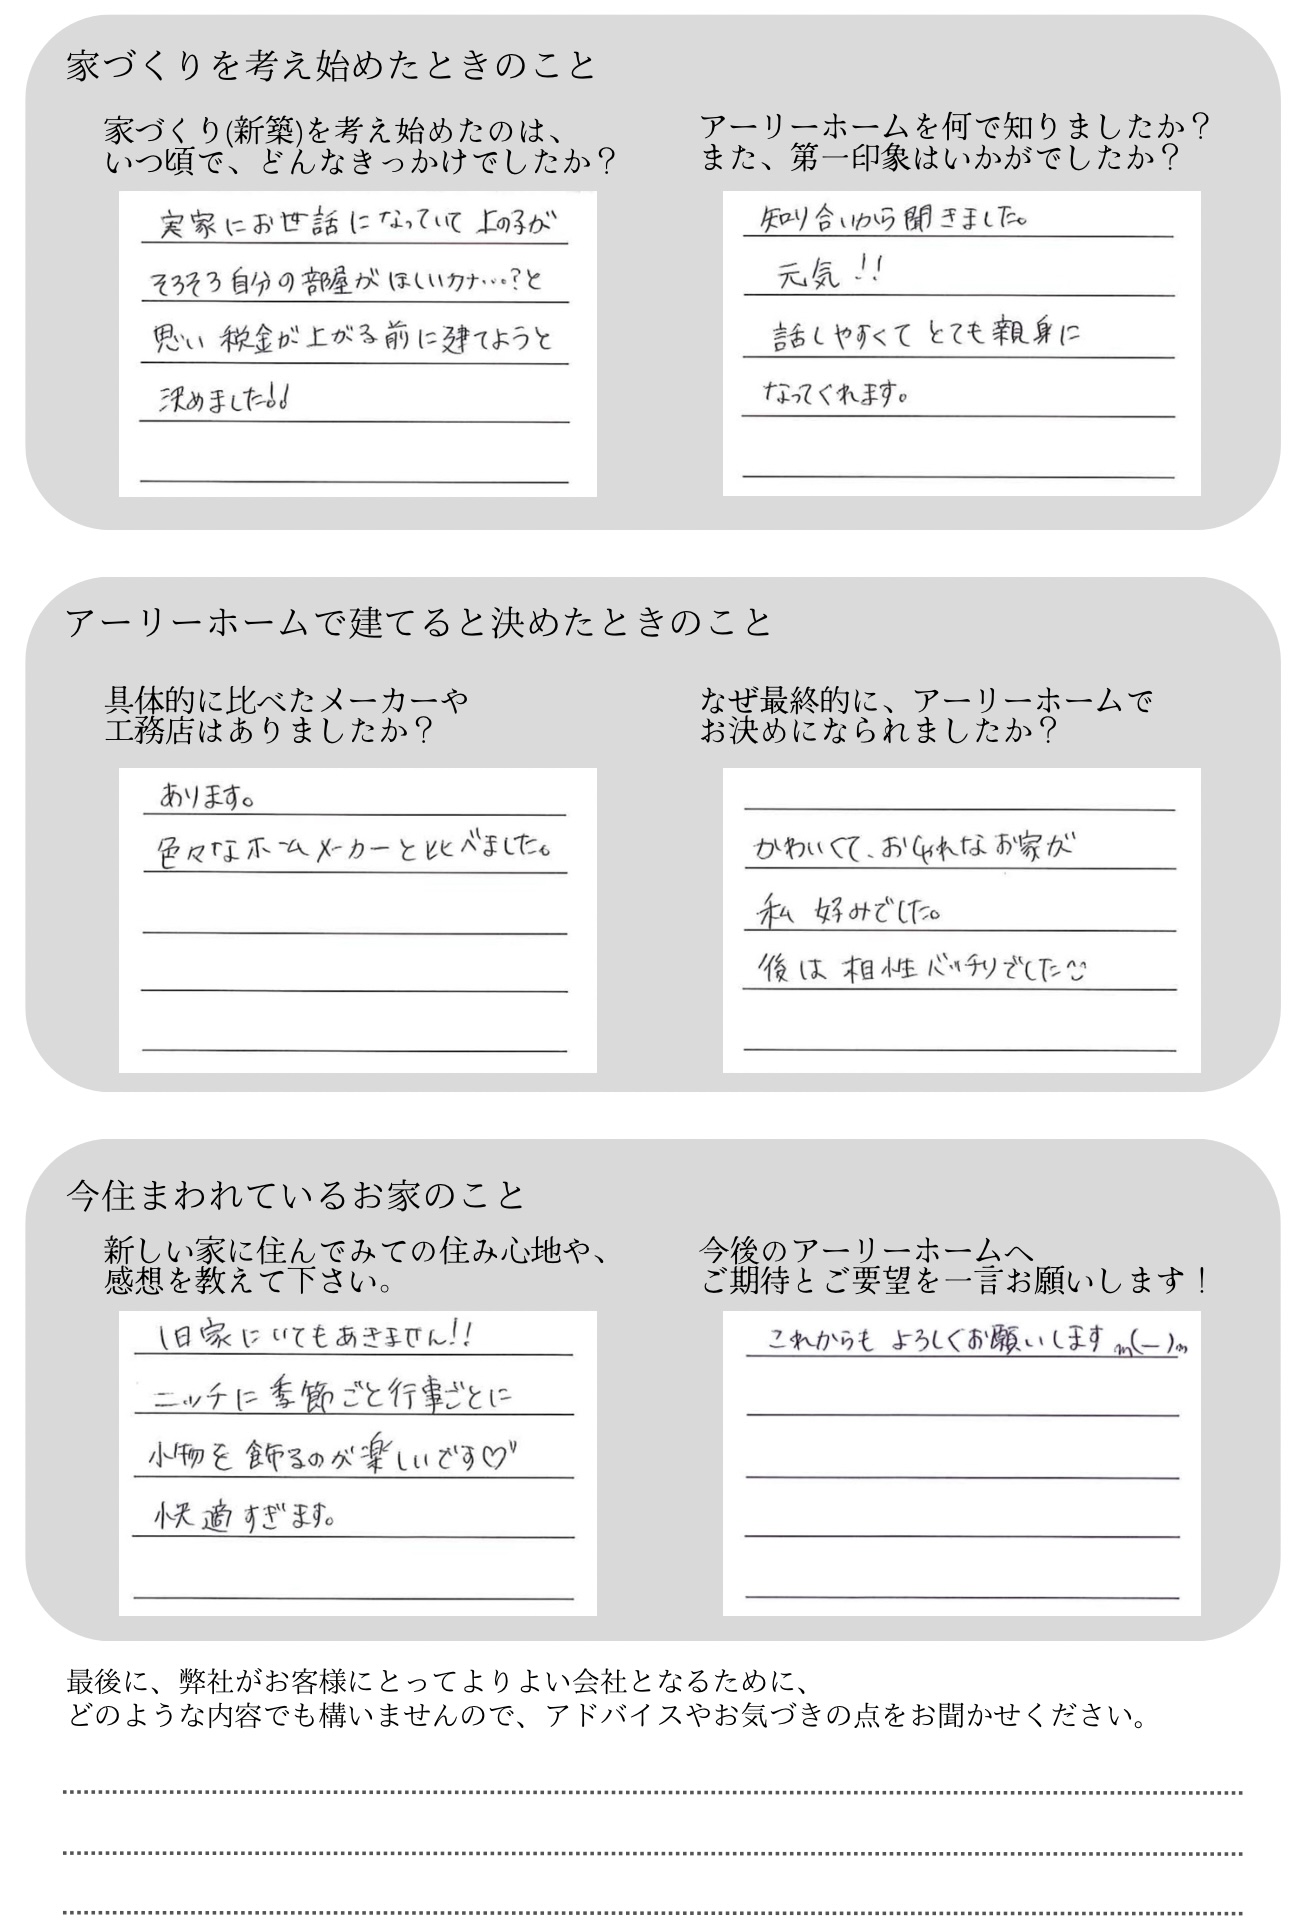 家づくりを考え始めたときのこと
家づくり(新築)を考え始めたのは、
いつ頃で、どんなきっかけでしたか？
実家にお世話になっていて 上の子が
そろそろ自分の部屋がほしいカナ…？と
思い 税金が上がる前に建てようと
決めました!!
アーリーホームを何で知りましたか？
また、第一印象はいかがでしたか？
知り合いから聞きました。
元気!!
話しやすくて とても親身に
なってくれます。
アーリーホームで建てると決めたときのこと
具体的に比べたメーカーや
工務店はありましたか？
あります。
色々なホームメーカーと比べました。
なぜ最終的に、アーリーホームで
お決めになられましたか？
かわいくて、おしゃれなお家が
私 好みでした。
後は 相性バッチリでした^^
今住まわれているお家のこと
新しい家に住んでみての住み心地や、
感想を教えて下さい。
1日家にいてもあきません!!
ニッチに季節ごと行事ごとに
小物を飾るのが楽しいです♡"
快適すぎます。
今後のアーリーホームへ
ご期待とご要望を一言お願いします！
これからも よろしくお願いします m(—)m
最後に、弊社がお客様にとってよりよい会社となるために、
どのような内容でも構いませんので、アドバイスやお気づきの点をお聞かせください。